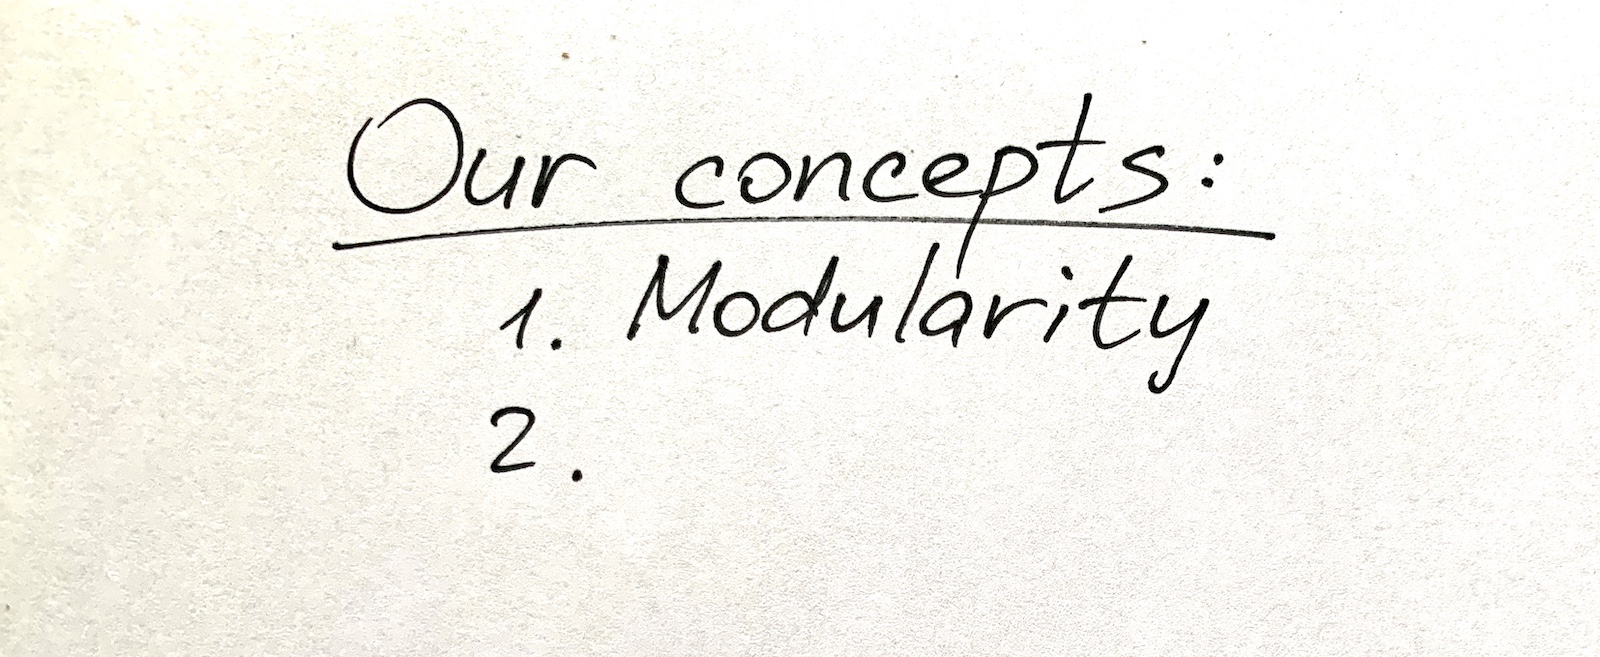 Our concepts:
1. Modularity
2.